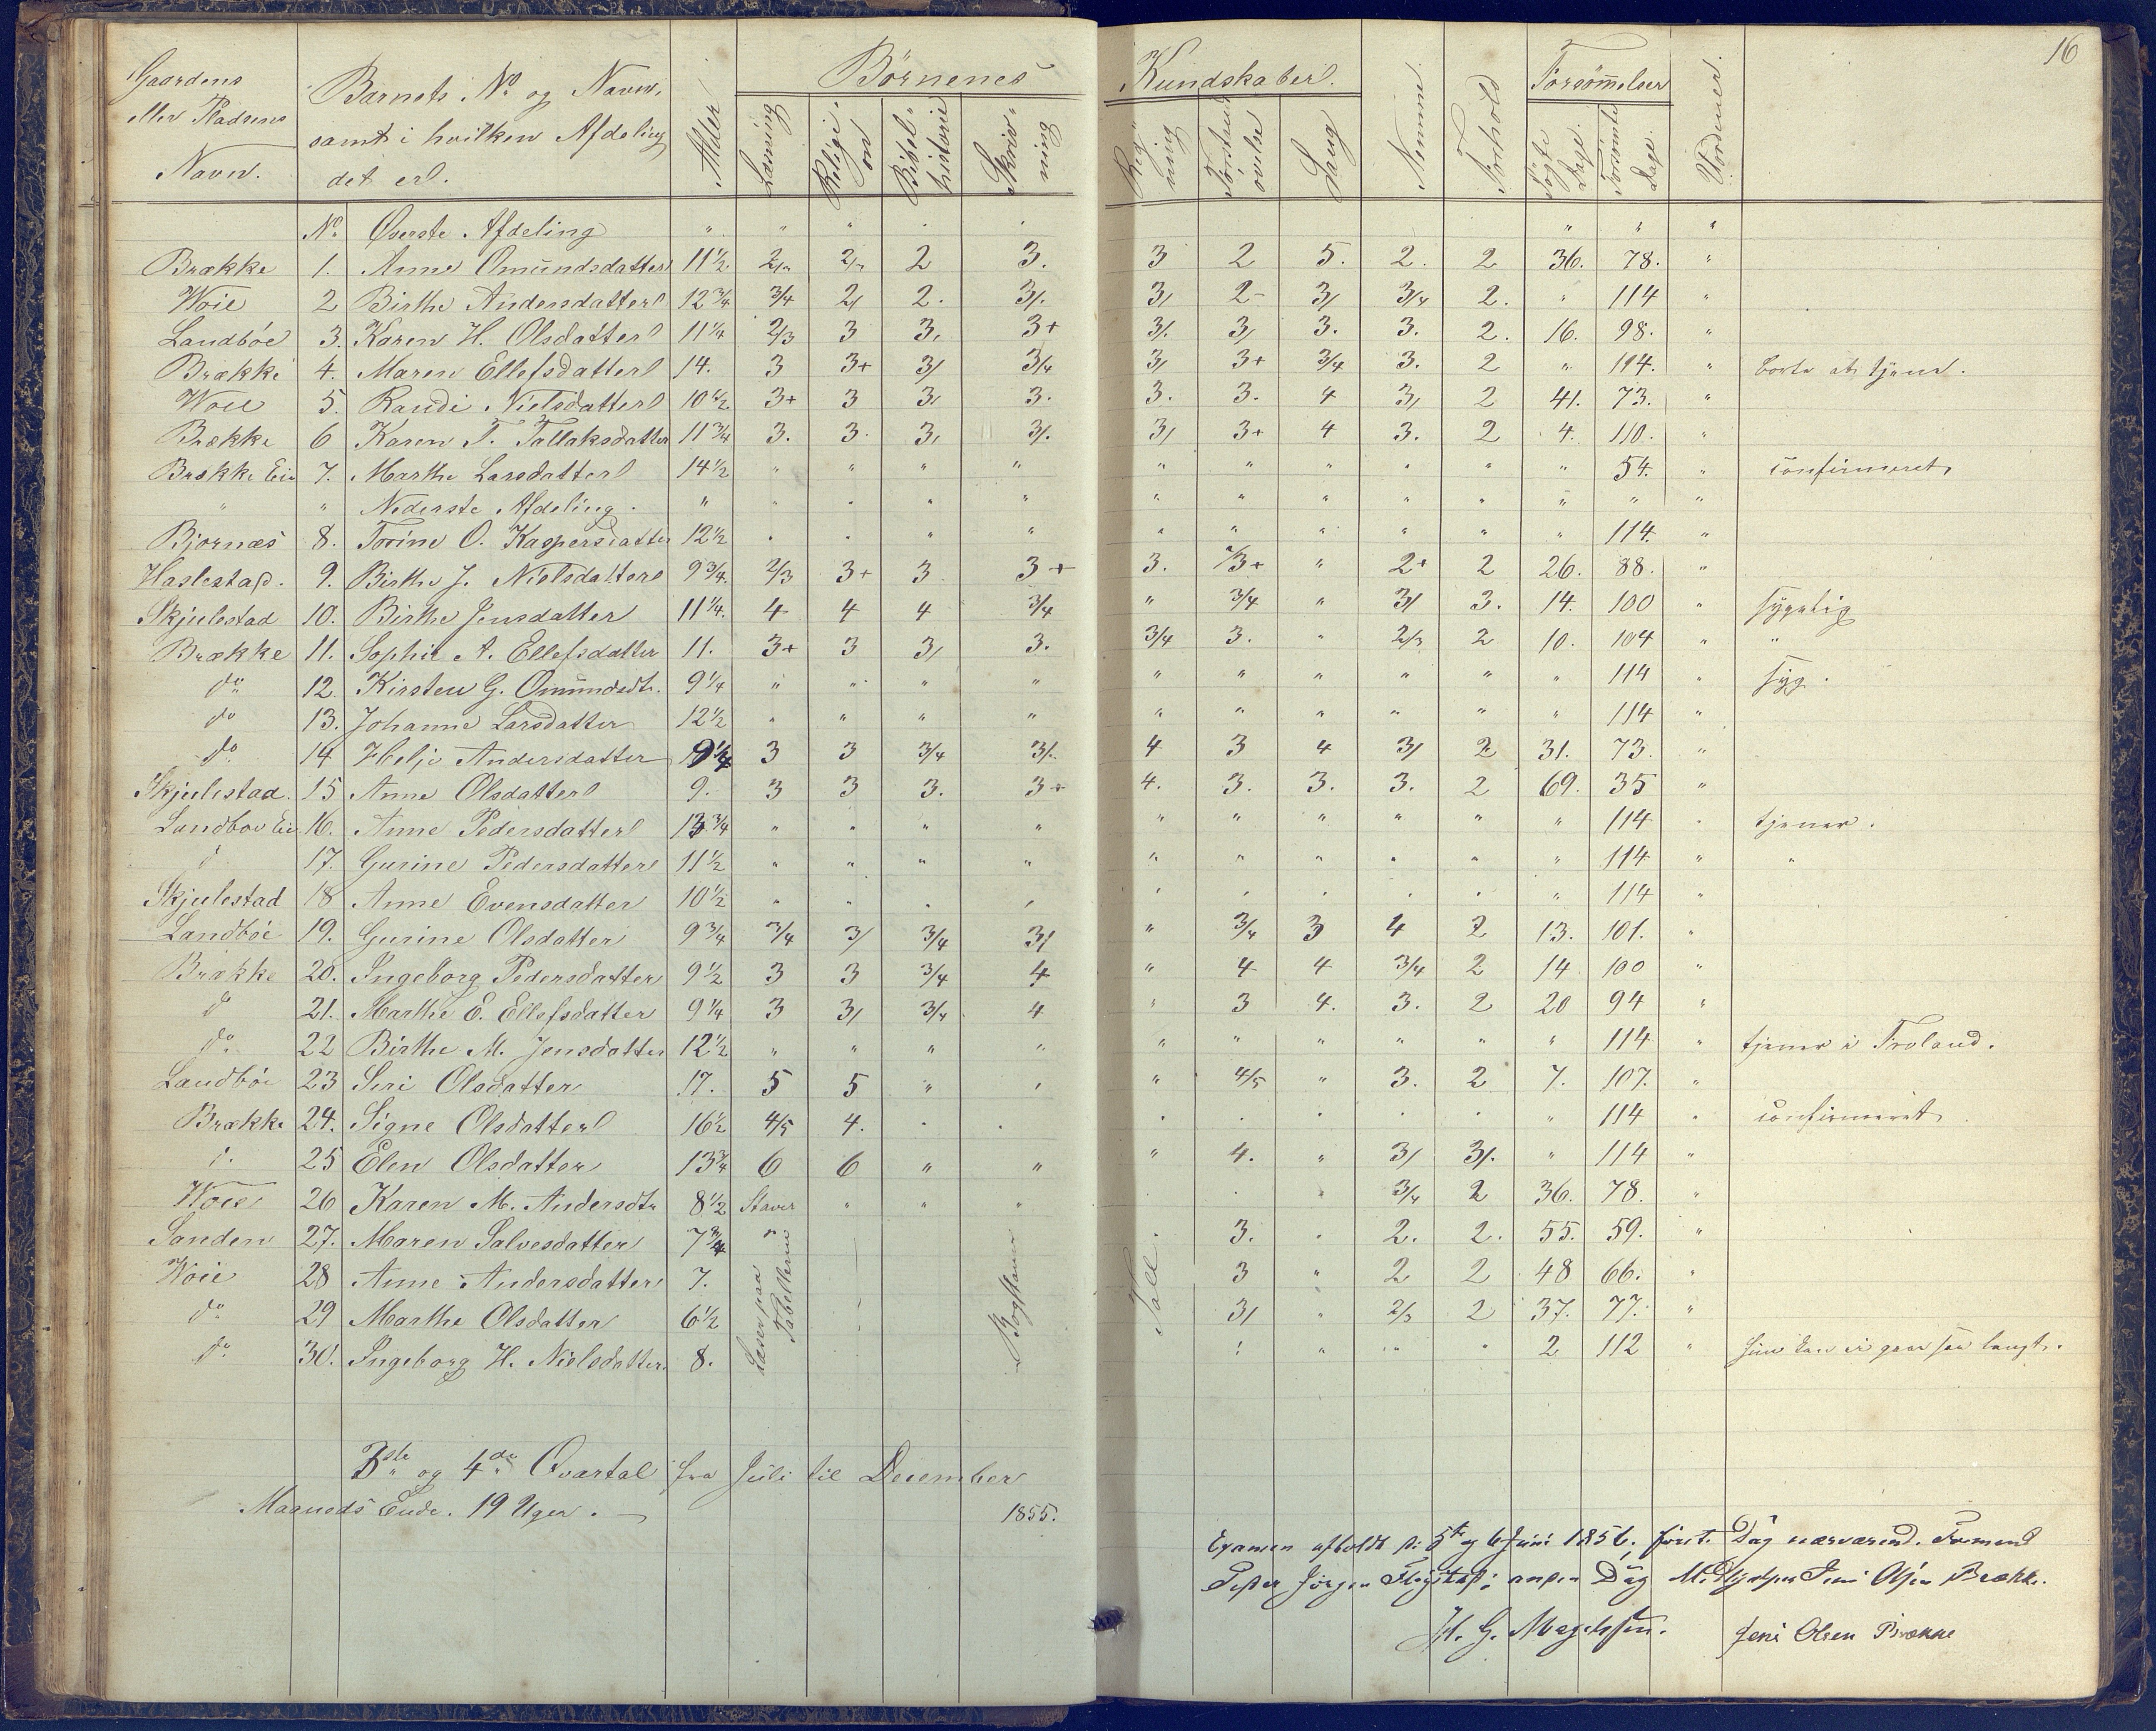 16
Gaardens eller Pladsens Navn. | Barnets No og Navn, samt i hvilken Afdeling det er. | Alder | Børnenes Kundskaber. | Nemme | Forhold | Forsømmelser | Vordener.
Læsning | Religion | Bibelhistorie | Skrivning | Regning | Sang | Søgte Dage. | Forsømte Dage.
No Øverste Afdeling " " " " " " " "
Brække 1. Anne Omundsdatter 11½ 2 3. 3 2 5. 2. 2 36. 78. "
Woie 2 Birthe Andersdatter 12¾ 3/4 2/ 2. 3/. 3/ 2- 3/ 3/4 2. " 114 "
Landbøe 3. Karen H. Olsdatter 11¼ 2/3 3 3, 3+ 3/. 3/ 3. 3. 2. 16. 98. "
Brække 4. Maren Ellefsdatter 14. 3 3+ 3/ 3/4 3/ 3+ 3/4 3. 2 " 114. " borte at tjene.
Woie 5. Randi Nielsdatter 10½ 3+ 3 3, 3. 3. 3. 4 3/ 2 41. 73. "
Brække 6 Karen T. Tallaksdatter 11¾ 3. 3. 3, 3/. 3/ 3+ 4 3. 2 4. 110. "
Brække Eie 7. Marthe Larsdatter 14½ " " " " " " " " " " 54. " confirmeret
" " Nederste Afdeling. " " " " " " " " " " " " "
Bjornæs 8. Torine O. Kaspersdatter 12½ " " " " " " " " " " 114. "
Haslestad. 9. Birthe J. Nielsdatter 9¾. 2/3 3+ 3 3+ 3. 2/3+ " 2+ 2 26. 88. "
Skjulestad 10. Birthe Jensdatter 11¼. 4 4 4 3/4 " 3/4 " 3/ 3. 14. 100 " sygelig
Brække 11. Sophie A. Ellefsdatter 11. 3+ 3 3, 3. 3/4 3. " 2/3 2 10. 104 " "
do 12. Kirsten G. Omundsdt. 9¼ " " " " " " " " " " 114 " syg.
do 13. Johanne Larsdatter 12½ " " " " " " " " " " 114 "
do 14 Helje Andersdatter 9¼ 3 3 3/4 3/. 4 3 4 3/ 2 31. 73. "
Skjulestad. 15 Anne Olsdatter 9. 3 3 3. 3+ 4. 3. 3. 3. 2 69. 35 "
Landboe Eie 16. Anne Pedersdatter 13¾ " " " " " " " " " " 114 " tjener.
d 17. Gurine Pedersdatter 11½ " " " " " " " " " " 114 " "
Skjulestad 18 Anne Evensdatter 10½ " " " " " " " " " " 114 "
Landbøe 19. Gurine Olsdatter 9¾ 3/4 3/ 3/4 3/ " 3/4 3 4 2 13. 101. "
Brække 20. Ingeborg Pedersdatter 9½ 3 3 3/4 4 " 4 4 3/4 2 14 100 "
do 21. Marthe E. Ellefsdatter 9¼ 3 3/ 3/4 4 " 3 4. 3. 2 20 94 "
do 22 Birthe M. Jensdatter 12½ " " " " " " " " " " 114 " tjener i Froland.
Landbøe 23 Siri Olsdatter 17. 5 5 " " " 4/5 " 3. 2 7. 107. "
Brække 24. Signe Olsdatter 16½ 4/5 4. " " " " " " " " 114 " confirmeret
d. 25 Elen Olsdatter 13¾ 6 6 " " " 4. " 3/ 3/. " 114 "
Woie 26 Karen M. Andersdtr 8½ Staver " " " " " 3/4 2 36. 78. "
Sanden 27. Maren Salvesdatter 7¾ " 3. " 2. 2. 55. 59. "
Woie 28 Anne Andersdatter 7. 3 " 2 2 48 66. "
do 29 Marthe Olsdatter 6½ 3/ " 2/3 2 37. 77. "
do 30. Ingeborg H. Nielsdatter. 8. " " " " 2 112 " hun kan ei gaae saa langt.
Læser paa Tabellerne
Bogstaver
Tall.
3die og 4de Qvartal fra Juli til December
Maaneds Ende. 19 Uger. — 1855.
Examen afholdt d: 5te og 6 Juni 1856, første Dag nærværend. Formend
Peder Jörgen ; anden Dag Medhjelper Jens Olsen Brække.
H. G. Magelssen. Jens Olsen Brække